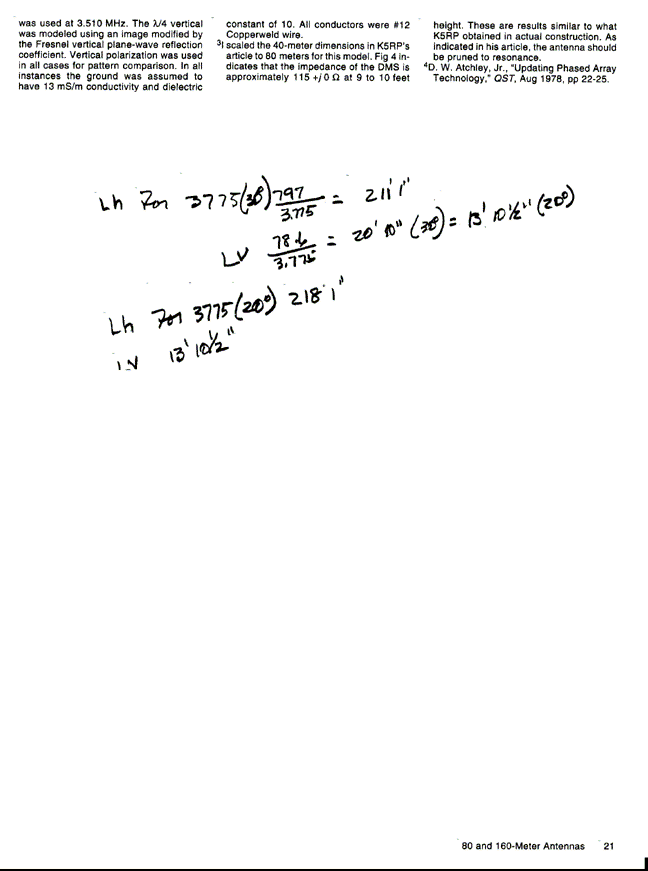 was used at 3.510 MHz. The λ/4 vertical
was modeled using an image modified by
the Fresnel vertical plane-wave reflection
coefficient. Vertical polarization was used
in all cases for pattern comparison. In all
instances the ground was assumed to
have 13 mS/m conductivity and dielectric
constant of 10. All conductors were #12
Copperweld wire.
³I scaled the 40-meter dimensions in K5RP's
article to 80 meters for this model. Fig 4 in-
dicates that the impedance of the DMS is
approximately 115 +j 0 Ω at 9 to 10 feet
height. These are results similar to what
K5RP obtained in actual construction. As
indicated in his article, the antenna should
be pruned to resonance.
⁴D. W. Atchley, Jr., "Updating Phased Array
Technology," QST, Aug 1978, pp 22-25.
Lh For 3775(30°) 797/3.775 = 211' 1"
LV 78.6/3.775 = 20' 10" (30°) = 13' 10½" (20°)
Lh For 3775(20°) 218' 1"
LV 13' 10½"
80 and 160-Meter Antennas 21